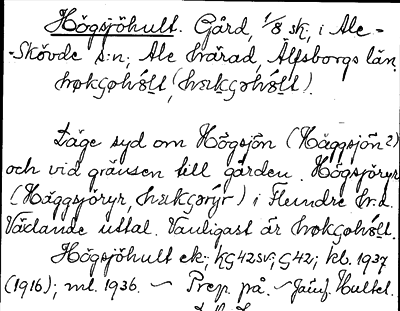 Högsjöhult. Gård, 1/8 sk, i Ale-
-Skövde s:n, Ale härad, Älfsborgs län.
Läge syd om Högsjön (Häggsjön?)
och vid gränsen till gården Högsjöryr
(Häggsjöryr, ) i Flundre h:d.
Växlande uttal. Vanligast är
Högsjöhult ek; KG42SV; G42; kb. 1937
(1916); ml. 1936. — Prep. på. — Jämf. Hultet.